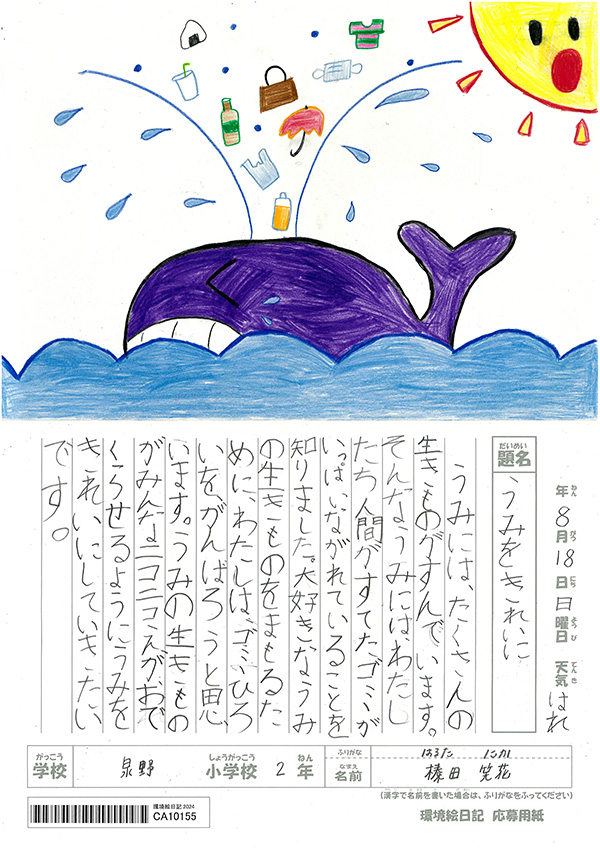 年 8月18日 日曜日 天気 はれ
ねん がつ にち ようび てんき
だいめい
題名 うみをきれいに
うみには、たくさんの
生きものがすんでいます。
そんなうみには、わたし
たち人間がすてた、ゴミが
いっぱいながれていることを
知りました。大好きなうみ
の生きものをまもるた
めに、わたしは、ゴミひろ
いを、がんばろうと思
います。うみの生きもの
がみんなニコニコえがおで
くらせるようにうみを
きれいにしていきたい
です。
がっこう しょうがっこう ねん ふりがな はるた にか
学校 泉野 小学校 2年 なまえ 名前 榛田 笑花
(漢字で名前を書いた場合は、ふりがなをふってください)
環境絵日記 2024
CA10155
環境絵日記 応募用紙